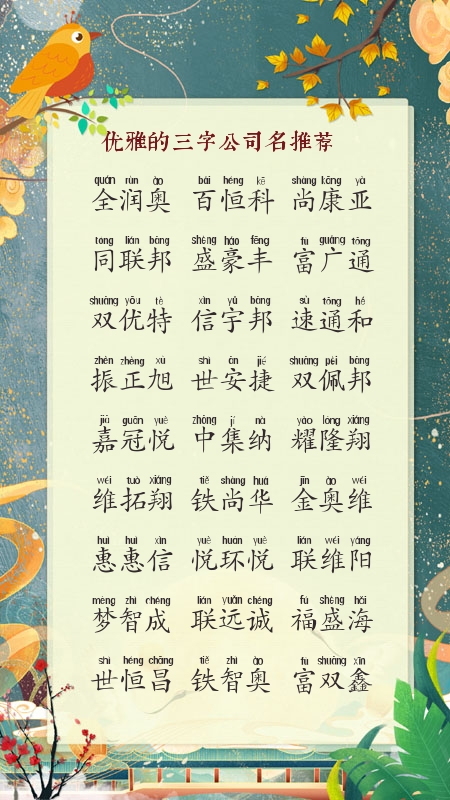 优雅的三字公司名推荐
quán rùn ào bǎi héng kē shàng kāng yà
全润奥 百恒科 尚康亚
tóng lián bāng shèng háo fēng fù guǎng tōng
同联邦 盛豪丰 富广通
shuāng yōu tè xìn yǔ bāng sù tōng hé
双优特 信宇邦 速通和
zhèn zhèng xù shì ān jié shuāng pèi bāng
振正旭 世安捷 双佩邦
jiā guān yuè zhōng jí nà yào lóng xiáng
嘉冠悦 中集纳 耀隆翔
wéi tuò xiáng tiě shàng huá jīn ào wéi
维拓翔 铁尚华 金奥维
huì huì xìn yuè huán yuè lián wéi yáng
惠惠信 悦环悦 联维阳
mèng zhì chéng lián yuǎn chéng fú shèng hǎi
梦智成 联远诚 福盛海
shì héng chāng tiě zhì ào fù shuāng xīn
世恒昌 铁智奥 富双鑫